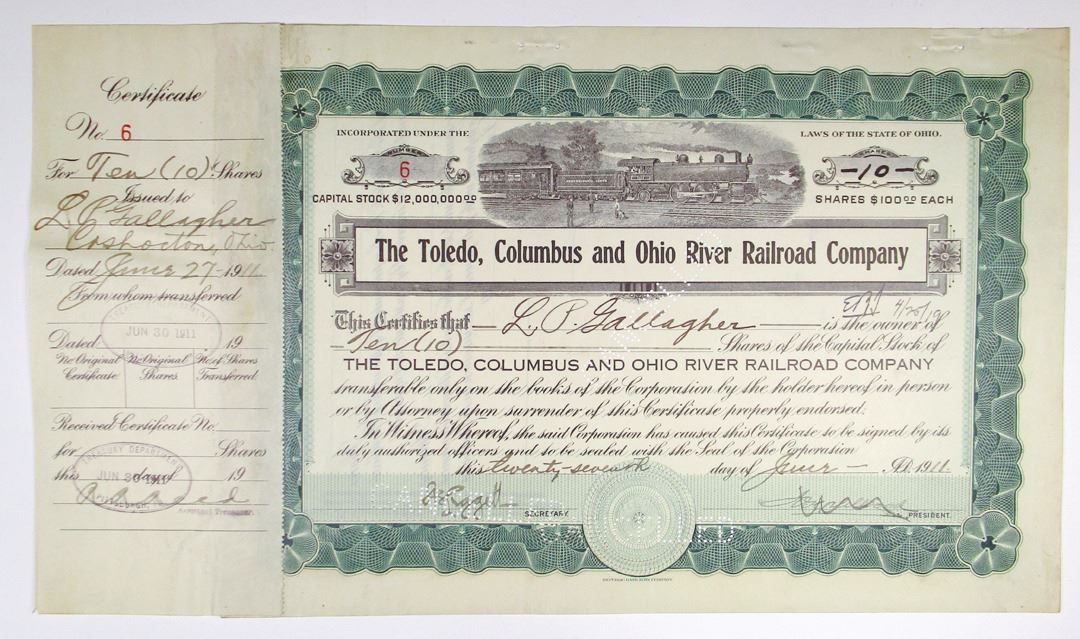 Certificate
No. 6
For Ten (10) Shares
Issued to
L. P. Gallagher
Coshocton, Ohio
Dated June 27- 1911
From whom transferred
JUN 30 1911
Dated 19
No. Original Certificate No. Original Shares No. of Shares Transferred
Received Certificate No.
for Shares
TREASURY DEPARTMENT
this day of 19
JUN 30 1911
PITTSBURGH, PA.
Assistant Treasurer.
INCORPORATED UNDER THE LAWS OF THE STATE OF OHIO.
NUMBER SHARES
6 -10-
CAPITAL STOCK $12,000,000.00 SHARES $100.00 EACH
The Toledo, Columbus and Ohio River Railroad Company
4/20/19
This Certifies that L. P. Gallagher is the owner of
Ten (10) Shares of the Capital Stock of
THE TOLEDO, COLUMBUS AND OHIO RIVER RAILROAD COMPANY
transferable only on the books of the Corporation by the holder hereof in person
or by Attorney upon surrender of this Certificate properly endorsed.
In Witness Whereof, the said Corporation has caused this Certificate to be signed by its
duly authorized officers and to be sealed with the Seal of the Corporation
this twenty-seventh day of June - A.D. 1911
SECRETARY. PRESIDENT.